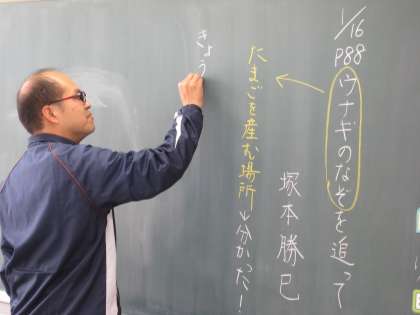 1/16
P88
ウナギのなぞを追って
塚本勝巳
たまごを産む場所→分かった!
きょう